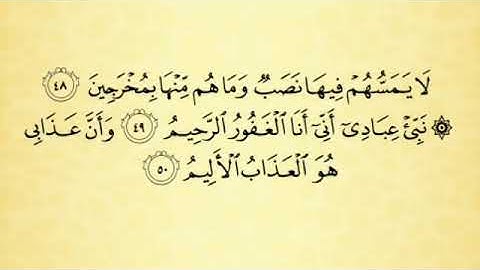 لَا يَمَسُّهُمْ فِيهَا نَصَبٌ وَمَا هُم مِّنْهَا بِمُخْرَجِينَ ٤٨
۞ نَبِّئْ عِبَادِىٓ أَنِّىٓ أَنَا ٱلْغَفُورُ ٱلرَّحِيمُ ٤٩ وَأَنَّ عَذَابِى
هُوَ ٱلْعَذَابُ ٱلْأَلِيمُ ٥٠